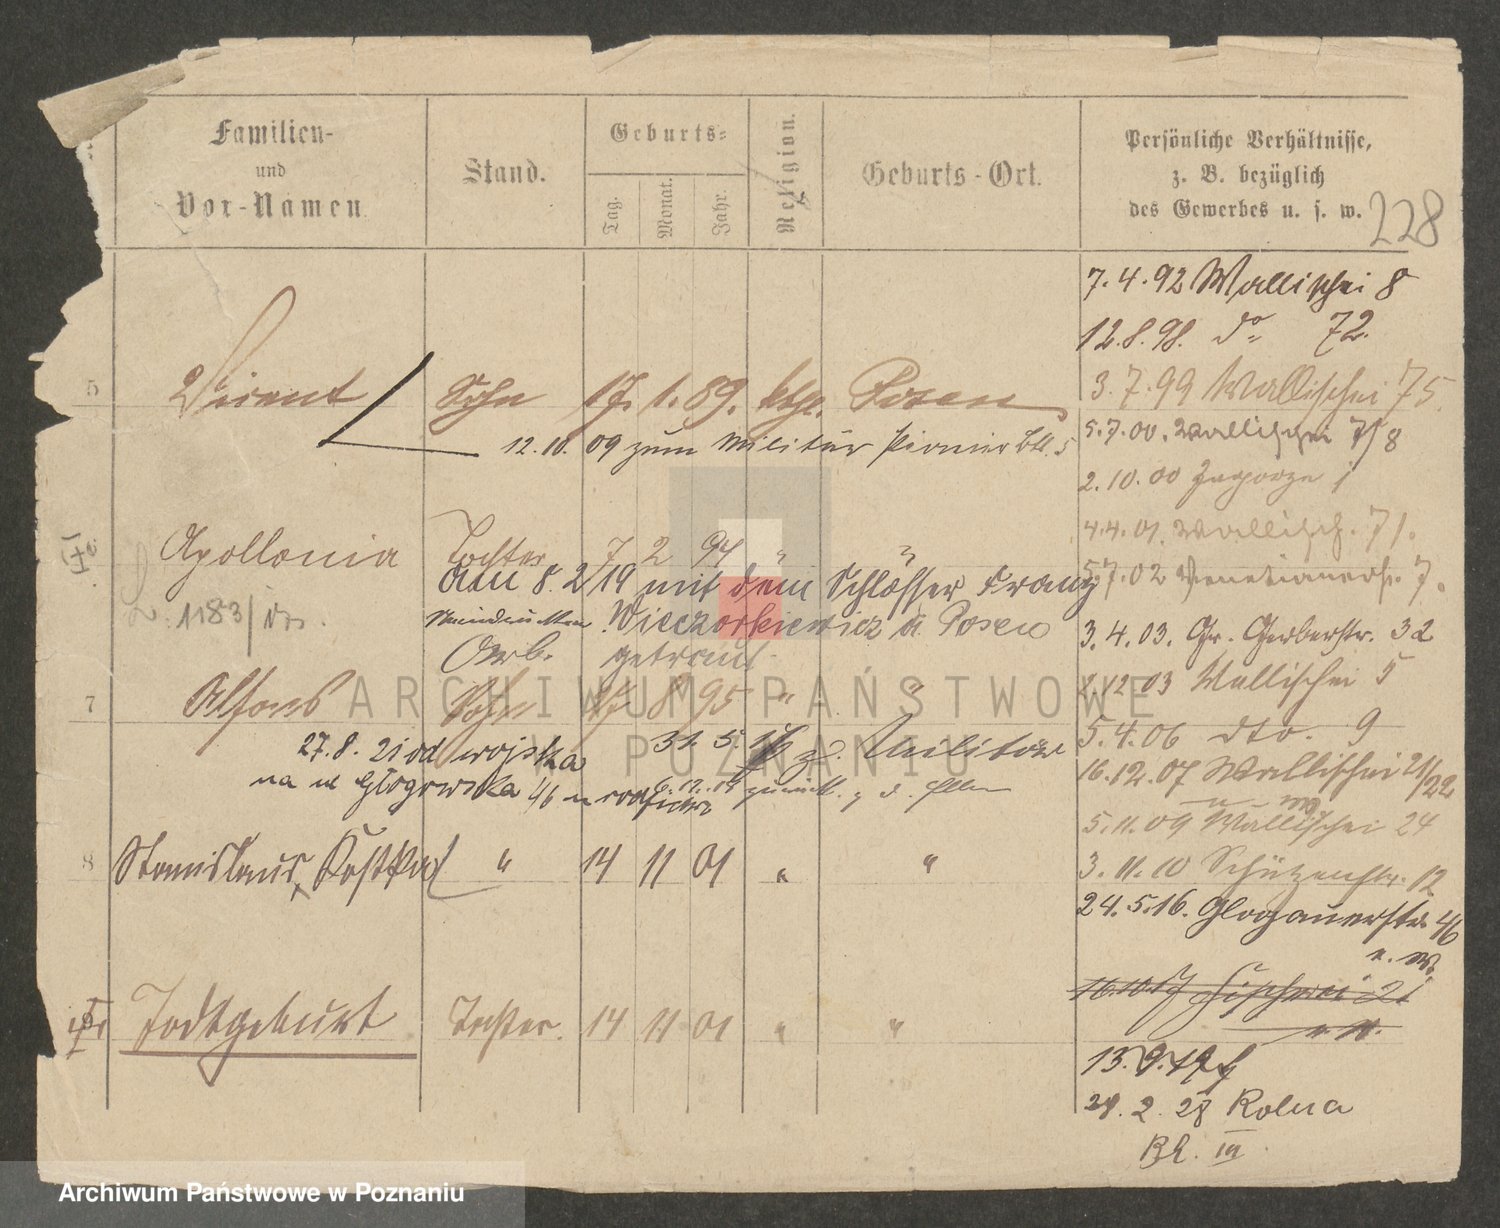 Familien-
und
Vor-Namen.
Stand.
Geburts-
Tag.
Monat.
Jahr.
Religion.
Geburts-Ort.
Persönliche Verhältnisse,
z. B. bezüglich
des Gewerbes u. s. w.
228
7.4.92 Wallischei 8
12.8.98. do 72.
3.7.99 Wallischei 75.
5
Vincent Sohn 17. 1. 89. kath. Posen
5.7.00. Wallischei 7/8
12.10.09 zum Militär Pionier Btl. 5
2.10.00 Zagorze 1
4.4.01. Wallisch. 71.
Apollonia Tochter 7 2 94 " "
am 8.2/19 mit dem Schlosser Franz
5.7.02 Venetianerstr. 7.
1183/
Wieczorkiewicz a. Posen
3.4.03. Gr. Gerberstr. 32
Arb. getraut
12 03 Wallischei 5
7
Alfons Sohn 8 95 " "
5.4.06 dto. 9
27.8.21 od wojska
31. 5. z. Militär
16.12.07 Wallischei 21/22
na ul Głogowska 46
zurück
5.11.09 Wallischei 24
8
Stanislaus, Kostka " 14 11 01 " "
3.11.10 Schützenstr. 12
24.5.16. Glogauerstr 46
16.10.17 Fischerei 21
Todtgeburt Tochter. 14 11 01 " "
13.9.19
29.2.28 Rolna
Bl. III
ARCHIWUM PAŃSTWOWE
W POZNANIU
Archiwum Państwowe w Poznaniu